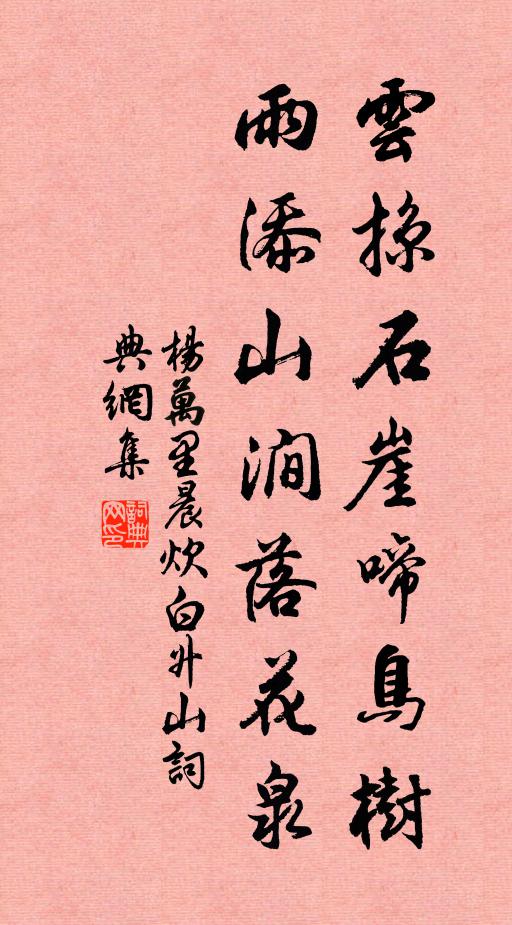 雲掠石崖啼鳥樹
雨添山澗落花泉
楊萬里晨炊白升山詞
典網集
詞典網印